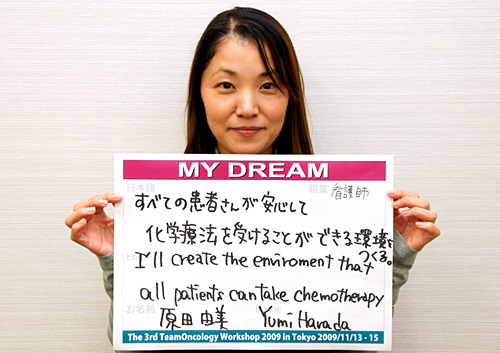 MY DREAM
日本語 職業 看護師
すべての患者さんが安心して
化学療法を受けることができる環境を
つくる。
I'll create the enviroment that
all patients can take chemotherapy
お名前
原田 由美 Yumi Harada
The 3rd TeamOncology Workshop 2009 in Tokyo 2009/11/13 - 15